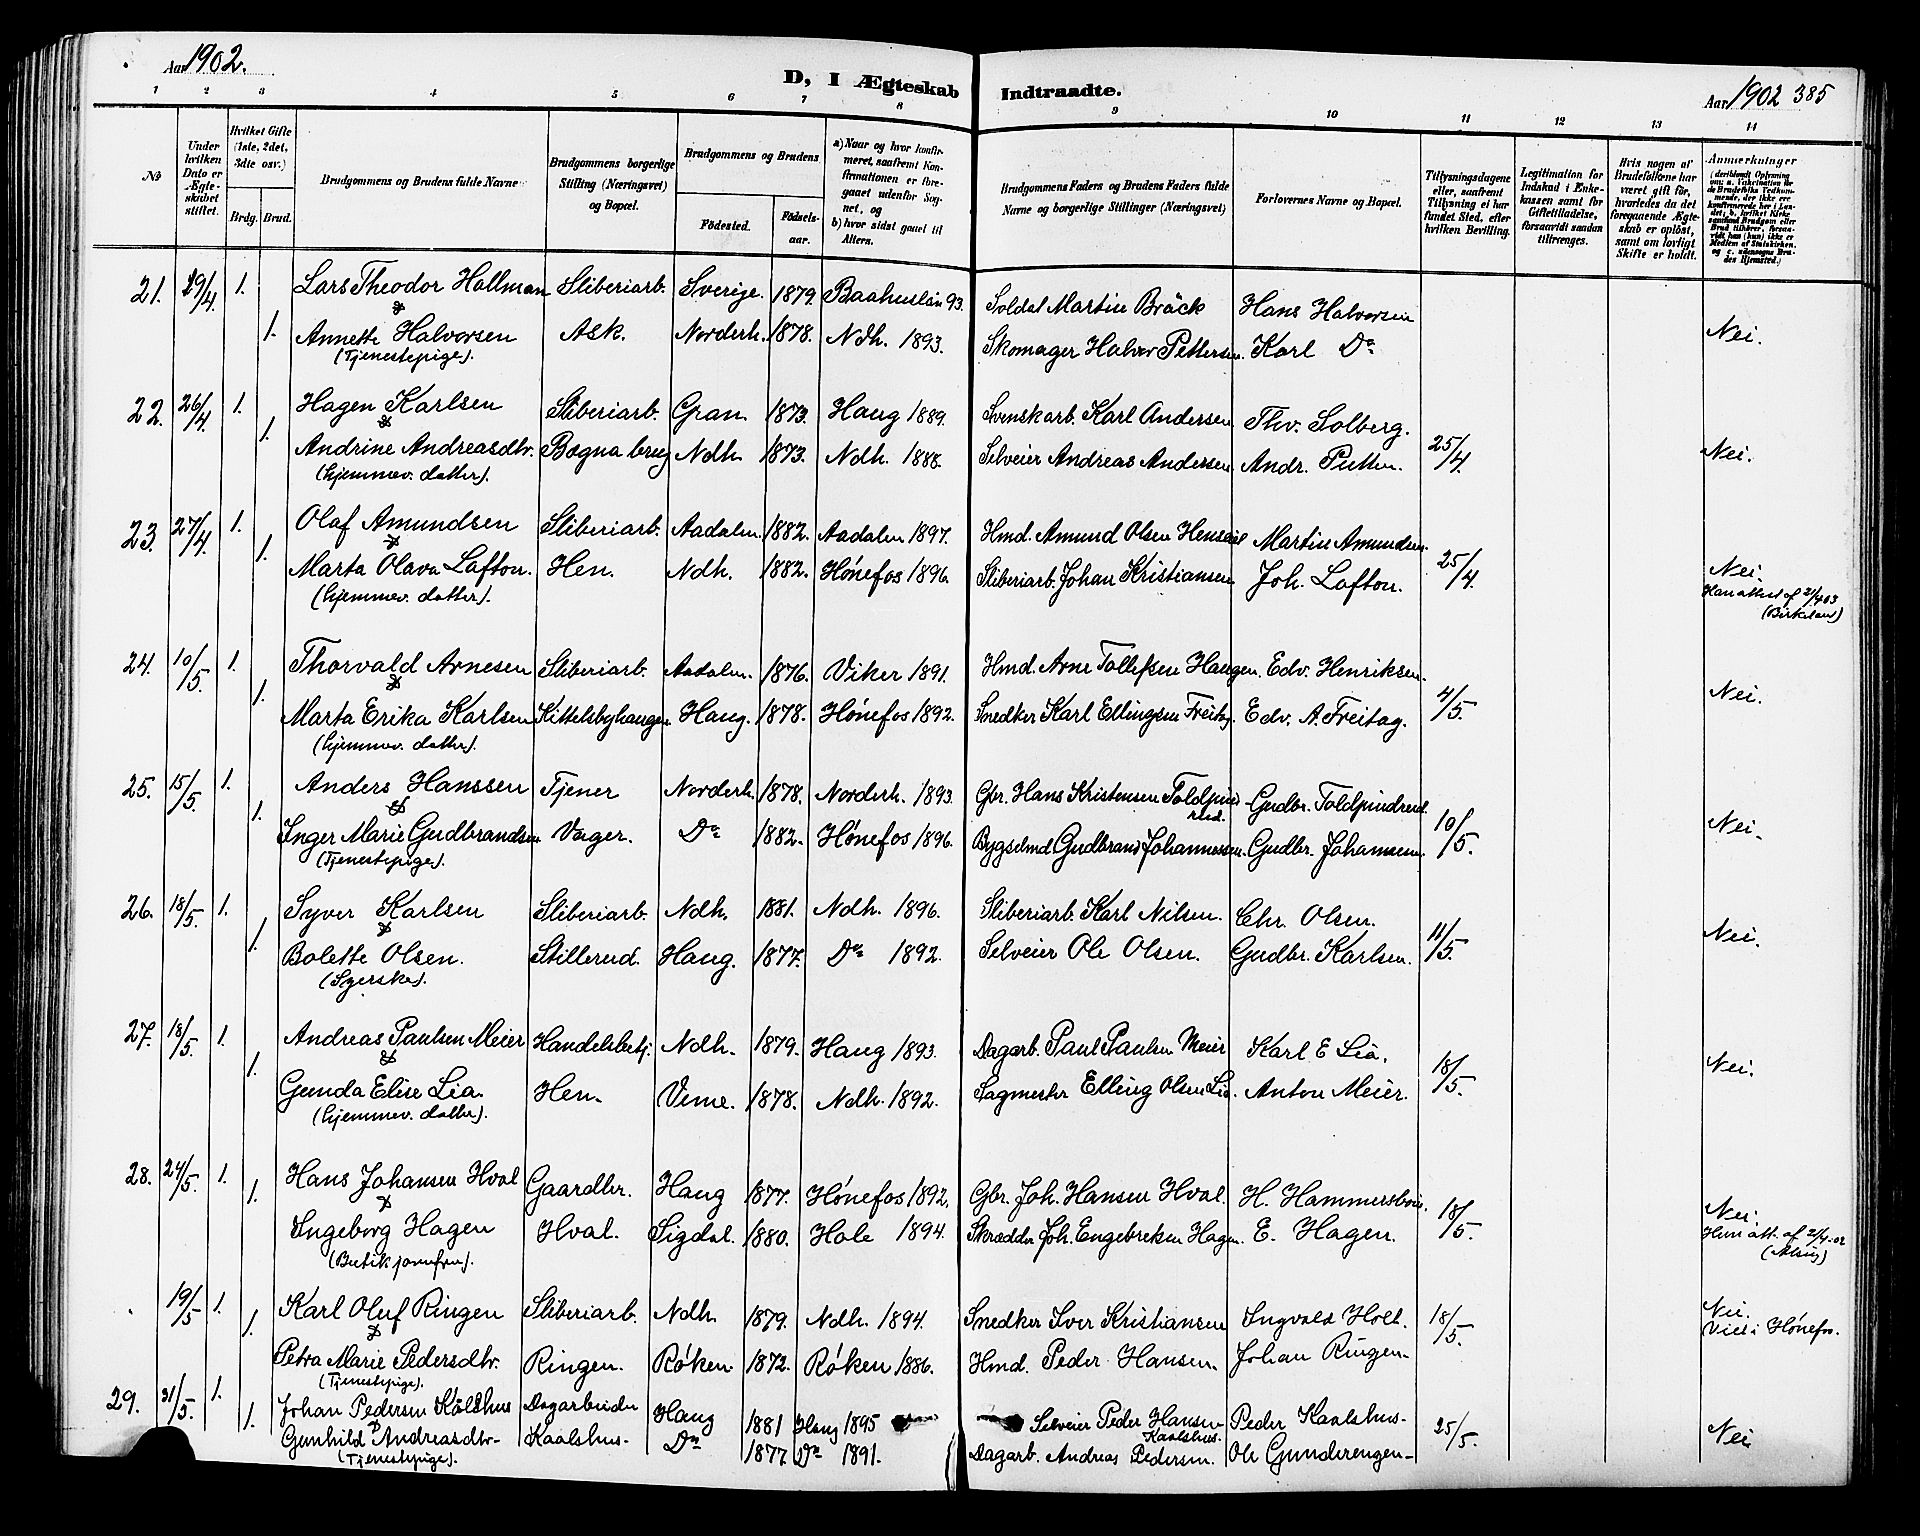 Aar 1902.
D, I Ægteskab Indtraadte.
Aar 1902 385
1 2 3 4 5 6 7 8 9 10 11 12 13 14
No
Under hvilken Dato er Ægteskabet stiftet.
Hvilket Gifte (1ste, 2det, 3die osv.)
Brdg. Brud.
Brudgommens og Brudens fulde Navne
Brudgommens borgerlige Stilling (Næringsvei) og Bopæl.
Brudgommens og Brudens
Fødested. Fødselsaar.
a) Naar og hvor konfirmeret, saafremt Konfirmationen er foregaaet udenfor Sognet, og
b) hvor sidst gaaet til Alters.
Brudgommens Faders og Brudens Faders fulde Navne og borgerlige Stillinger (Næringsvei)
Forlovernes Navne og Bopæl.
Tillysningsdagene eller, saafremt Tillysning ei har fundet Sted, efter hvilken Bevilling.
Legitimation for Indskud i Enkekassen samt for Giftetilladelse, forsaavidt saadan tiltrænges.
Hvis nogen af Brudefolkene har været gift før, hvorledes da det foregaaende Ægteskab er opløst, samt om lovligt Skifte er holdt.
Anmærkninger
21. 29/4 1. Lars Theodor Hallman Sliberiarb. Sverige. 1879. Baahuslän 93. Soldat Martin Bräck Hans Halvorsen
&
1. Annette Halvorsen Ask. Norderh. 1878. Ndh. 1893. Skomager Halvor Pettersen. Karl Do Nei.
(Tjenestepige).
22. 26/4 1. Hagen Karlsen Sliberiarb. Gran 1873. Haug 1889. Svenskarb. Karl Andersen Thv. Solberg.
&
1. Andrine Andreasdtr. Bægna brug Ndh. 1873. Ndh. 1888. Selveier Andreas Andersen. Andr. Putten. 25/4. Nei.
(hjemmev. datter).
23. 27/4. 1. Olaf Amundsen Sliberiarb. Aadalen. 1882. Aadalen 1897. Hmd. Amund Olsen Martin Amundsen.
&
1. Marta Olava Lafton. Hen. Ndh. 1882. Hónefos 1896. Sliberiarb. Johan Kristiansen Joh. Lafton. 25/4. Nei.
(hjemmev. datter). Han attest af 21/4 03
(Birkeland)
24. 10/5. 1. Thorvald Arnesen Sliberiarb. Aadalen. 1876. Viker 1891. Hmd. Arne Tollefsen Haugen. Edv. Henriksen.
&
1. Marta Erika Karlsen Kittelsbyhaugen Haug. 1878. Hónefos 1892. Snedker Karl Ellingsen Freitag. Edv. A. Freitag. 4/5. Nei.
(hjemmev. datter).
25. 15/5. 1. Anders Hanssen Tjener Norderh. 1878. Norderh. 1893. Gbr. Hans Kristensen Toldpindrud. Gudbr. Toldpindrud.
&
1. Inger Marie Gudbrandsen Vager. Do 1882. Hónefos 1896. Bygselmd Gudbrand Johannessen. Gudbr. Johannsen. 10/5. Nei.
(Tjenestepige).
26. 18/5. 1. Syver Karlsen Sliberiarb. Ndh. 1881. Ndh. 1896. Sliberiarb. Karl Nilsen. Chr. Olsen.
&
1. Bolette Olsen. Stillerud. Haug. 1877. Do 1892. Selveier Ole Olsen. Gudbr. Karlsen. 11/5. Nei.
(Syerske).
27. 18/5. 1. Andreas Paulsen Meier Handelsbetj. Ndh. 1879. Haug 1893. Dagarb. Paul Paulsen Meier Karl E Lia.
&
1. Gunda Elise Lia. Hen. Veme. 1878. Ndh. 1892. Sagmester Elling Olsen Lia. Anton Meier. 18/5. Nei.
(hjemmev. datter).
28. 24/5. 1. Hans Johansen Hval Gaardbr. Haug 1877. Hónefos 1892. Gbr. Joh. Hansen Hval. H. Hammersbøn.
&
1. Ingeborg Hagen Hval. Sigdal. 1880. Hole 1894. Skrædder Joh. Engebretsen Hagen. E. Hagen. 18/5. Nei.
(Butikjomfru). Hun att. af 2/4-02
19/5 1. Karl Oluf Ringen Sliberiarb. Ndh. 1879. Ndh. 1894. Snedker Iver Kristiansen Ingvald Holt. 18/5. Nei.
& Viet i Hónefos.
1. Petra Marie Pedersdtr. Ringen. Róken. 1872. Róken 1886. Hmd. Peder Hansen. Johan Ringen.
(Tjenestepige).
29. 31/5. 1. Johan Pedersen Kålshus Dagarbeider Haug 1881 Haug 1895 Selveier Peder Hansen Kaalshus. Peder Kaalshus.
&
1. Gunhild Andreasdtr. Kaalshus. Do 1877. Do 1891. Dagarb. Andreas Pedersen. Ole Gunderengen. 25/5. Nei
(Tjenestepige).